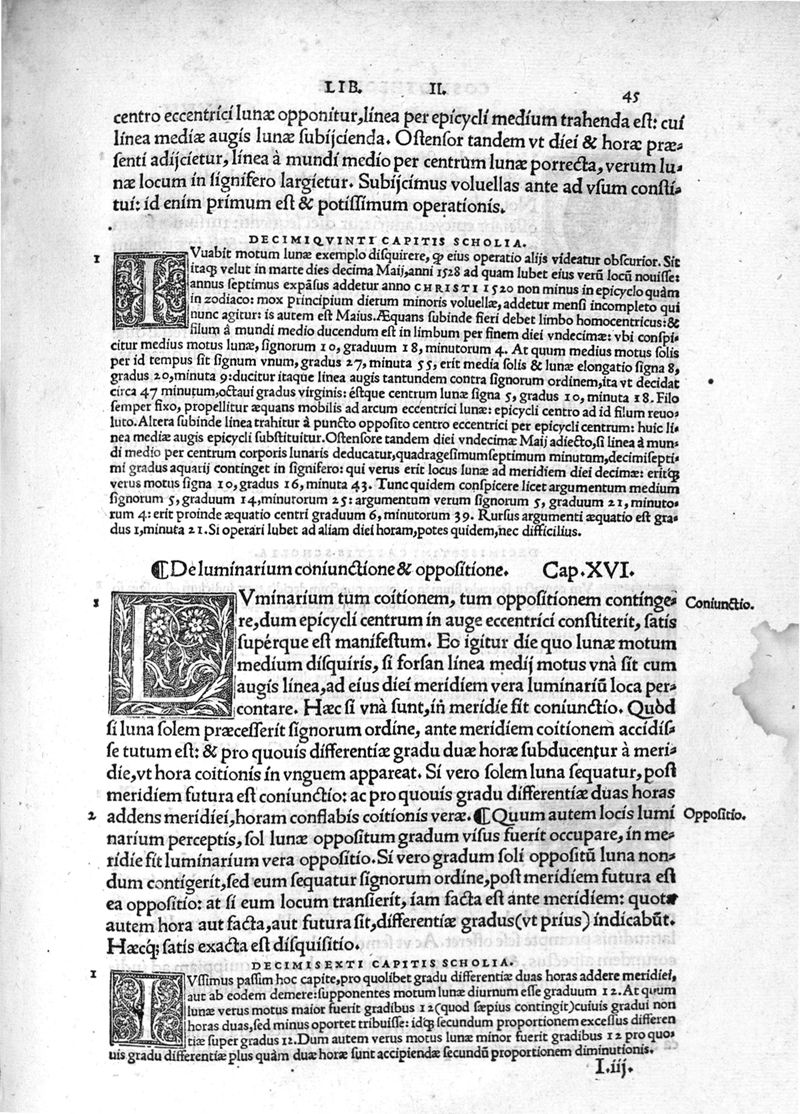 LIB. II. 45
centro eccentrici lunæ opponitur, línea per epicycli medium trahenda est: cui
línea mediæ augis lunæ subijcienda. Ostensor tandem vt diei & horæ præ-
senti adijcietur, línea à mundi medio per centrum lunæ porrecta, verum lu-
næ locum in signifero largietur. Subijcimus voluellas ante ad vsum consti-
tui: id enim primum est & potissimum operationis.
DECIMIQVINTI CAPITIS SCHOLIA.
1 IVuabit motum lunæ exemplo disquirere, ꝙ eius operatio alijs videatur obscurior. Sit
itaqꝫ velut in marte dies decima Maij, anni 1528 ad quam lubet eius verū locū nouisse:
annus septimus expāsus addetur anno CHRISTI 1520 non minus in epicyclo quàm
in zodiaco: mox principium dierum minoris voluellæ, addetur mensi incompleto qui
nunc agitur: is autem est Maius. Æquans subinde fieri debet limbo homocentricus: &
filum à mundi medio ducendum est in limbum per finem diei vndecimæ: vbi conspi-
citur medius motus lunæ, signorum 10, graduum 18, minutorum 4. At quum medius motus solis
per id tempus sit signum vnum, gradus 27, minuta 55, erit media solis & lunæ elongatio signa 8,
gradus 20, minuta 9: ducitur itaque línea augis tantundem contra signorum ordinem, ita vt decidat
circa 47 minutum, octaui gradus virginis: éstque centrum lunæ signa 5, gradus 10, minuta 18. Filo
semper fixo, propellitur æquans mobilis ad arcum eccentrici lunæ: epicycli centro ad id filum reuo-
luto. Altera subinde línea trahitur à puncto opposito centro eccentrici per epicycli centrum: huic li-
nea mediæ augis epicycli substituitur. Ostensore tandem diei vndecimæ Maij adiecto, si línea à mun-
di medio per centrum corporis lunaris deducatur, quadragesimumseptimum minutum, decimisepti-
mi gradus aquarij continget in signifero: qui verus erit locus lunæ ad meridiem diei decimæ: eritqꝫ
verus motus signa 10, gradus 16, minuta 43. Tunc quidem conspicere licet argumentum medium
signorum 5, graduum 14, minutorum 25: argumentum verum signorum 5, graduum 21, minuto-
rum 4: erit proinde æquatio centri graduum 6, minutorum 39. Rursus argumenti æquatio est gra-
dus 1, minuta 21. Si operari lubet ad aliam diei horam, potes quidem, nec difficilius.
⸿De luminarium coniunctione & oppositione. Cap. XVI.
1 LVminarium tum coitionem, tum oppositionem continge- Coniunctio.
re, dum epicycli centrum in auge eccentrici constiterit, satis
supérque est manifestum. Eo igitur die quo lunæ motum
medium disquiris, si forsan línea medij motus vnà sit cum
augis línea, ad eius diei meridiem vera luminariū loca per-
contare. Hæc si vnà sunt, in meridie fit coniunctio. Quòd
si luna solem præcesserit signorum ordine, ante meridiem coitionem accidis-
se tutum est: & pro quouis differentiæ gradu duæ horæ subducentur à meri-
die, vt hora coitionis in vnguem appareat. Si vero solem luna sequatur, post
meridiem futura est coniunctio: ac pro quouis gradu differentiæ duas horas
2 addens meridiei, horam conflabis coitionis veræ. ⸿Quum autem locis lumi Oppositio.
narium perceptis, sol lunæ oppositum gradum visus fuerit occupare, in me-
ridie fit luminarium vera oppositio. Si vero gradum soli oppositū luna non-
dum contigerit, sed eum sequatur signorum ordine, post meridiem futura est
ea oppositio: at si eum locum transierit, iam facta est ante meridiem: quota
autem hora aut facta, aut futura sit, differentiæ gradus (vt prius) indicabūt.
Hæcqꝫ satis exacta est disquisitio.
DECIMISEXTI CAPITIS SCHOLIA.
1 IVssimus passim hoc capite, pro quolibet gradu differentiæ duas horas addere meridiei,
aut ab eodem demere: supponentes motum lunæ diurnum esse graduum 12. At quum
lunæ verus motus maior fuerit gradibus 12 (quod sæpius contingit) cuiuis gradui non
horas duas, sed minus oportet tribuisse: idqꝫ secundum proportionem excessus differen
tiæ super gradus 12. Dum autem verus motus lunæ minor fuerit gradibus 12 pro quo-
uis gradu differentiæ plus quàm duæ horæ sunt accipiendæ secundū proportionem diminutionis.
I.iij.